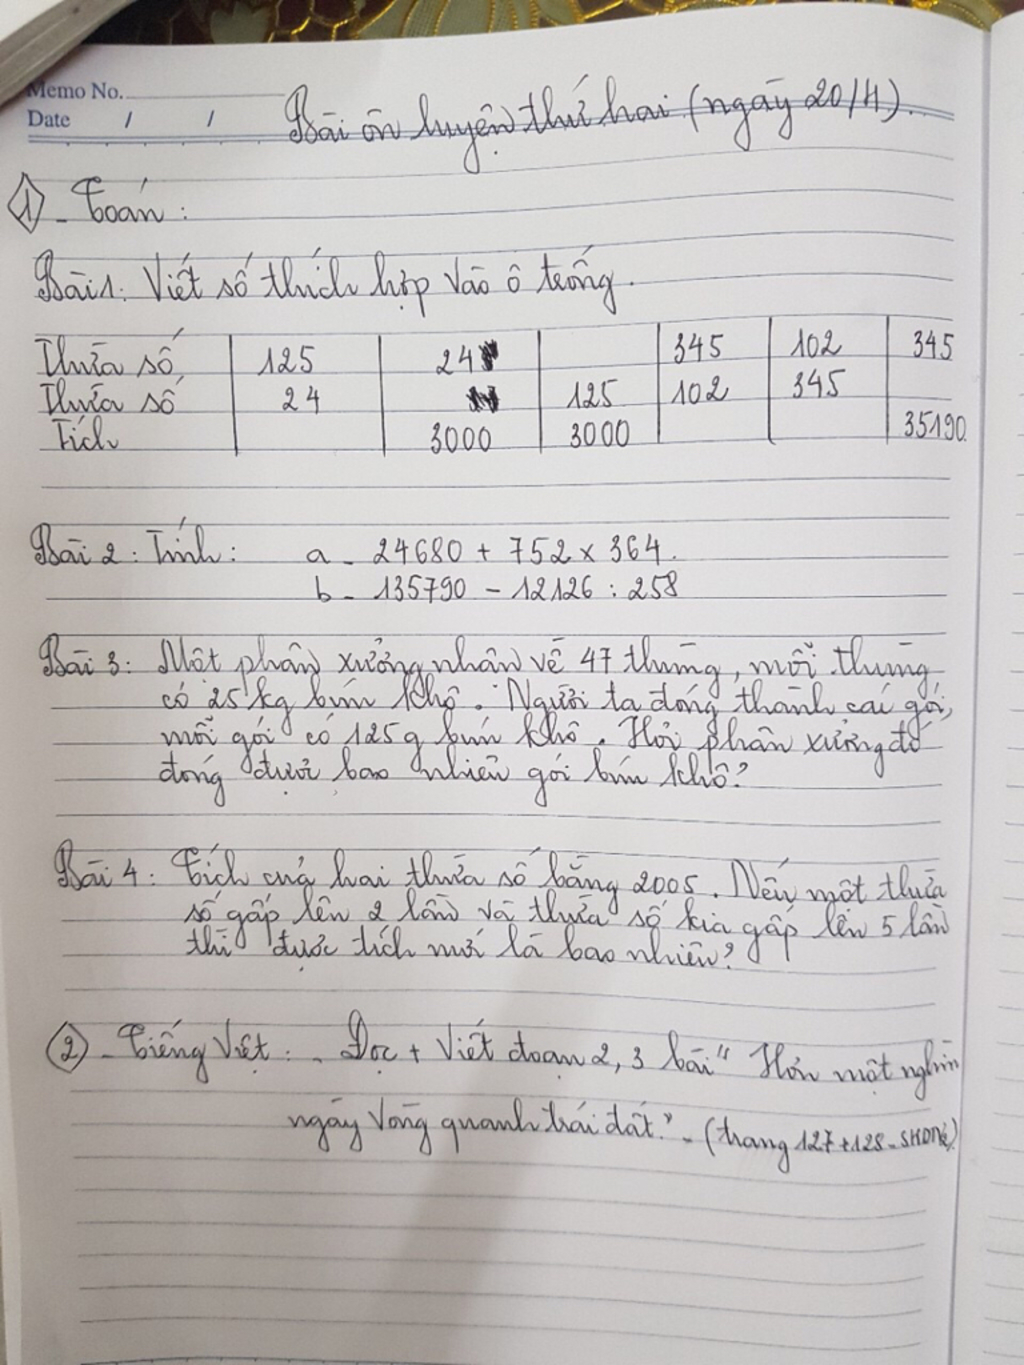 Memo No.
Date / /
Bài ôn luyện thứ hai (ngày 20/4).
1 - Toán:
Bài 1: Viết số thích hợp vào ô trống.
Thừa số 125 24 345 102 345
Thừa số 24 125 102 345
Tích 3000 3000 35190
Bài 2: Tính: a - 24680 + 752 x 364.
b - 135790 - 12126 : 258
Bài 3: Một phân xưởng nhận về 47 thùng, mỗi thùng
có 25 kg bún khô. Người ta đóng thành các gói,
mỗi gói có 125g bún khô. Hỏi phân xưởng đó
đóng được bao nhiêu gói bún khô?
Bài 4: Tích của hai thừa số bằng 2005. Nếu một thừa
số gấp lên 2 lần và thừa số kia gấp lên 5 lần
thì được tích mới là bao nhiêu?
2 - Tiếng Việt: - Đọc + Viết đoạn 2, 3 bài "Hơn một nghìn
ngày vòng quanh trái đất." - (trang 127+128-